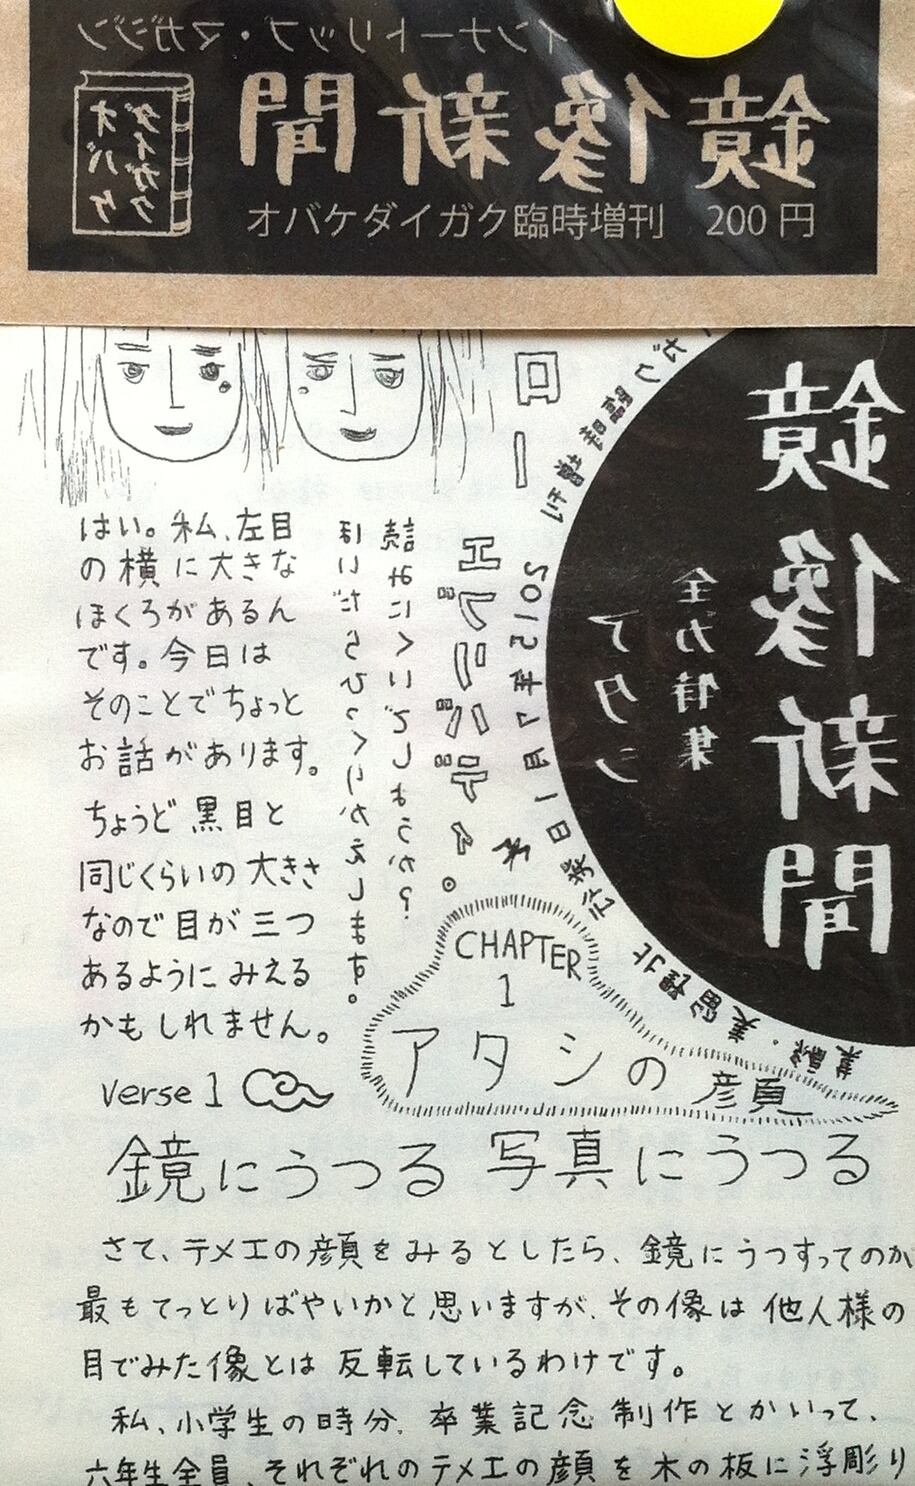 インナートリップ・マガジン
鏡像新聞
オバケ
ダイガク
オバケダイガク臨時増刊 200円
鏡像新聞
全力特集
アタシ
ガク臨時増刊
2015年7月1日
ハロー
エブリバディ。
読みにくいでしょうか?
ほいだらひっくりかえします。
はい。私、左目
の横に大きな
ほくろがあるん
です。今日は
そのことでちょっと
お話があります。
ちょうど黒目と
同じくらいの大きさ
なので目が三つ
あるようにみえる
かもしれません。
CHAPTER
1
アタシの顔
verse 1
鏡にうつる 写真にうつる
さて、テメエの顔をみるとしたら、鏡にうつすってのが
最もてっとりばやいかと思いますが、その像は他人様の
目でみた像とは反転しているわけです。
私、小学生の時分、卒業記念制作とかいって、
六年生全員、それぞれのテメエの顔を木の板に浮彫り